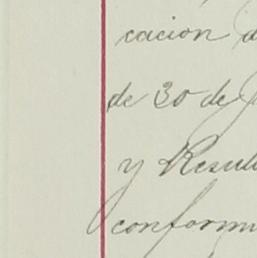 cacion d
de 30 de J
y Resul
conformi